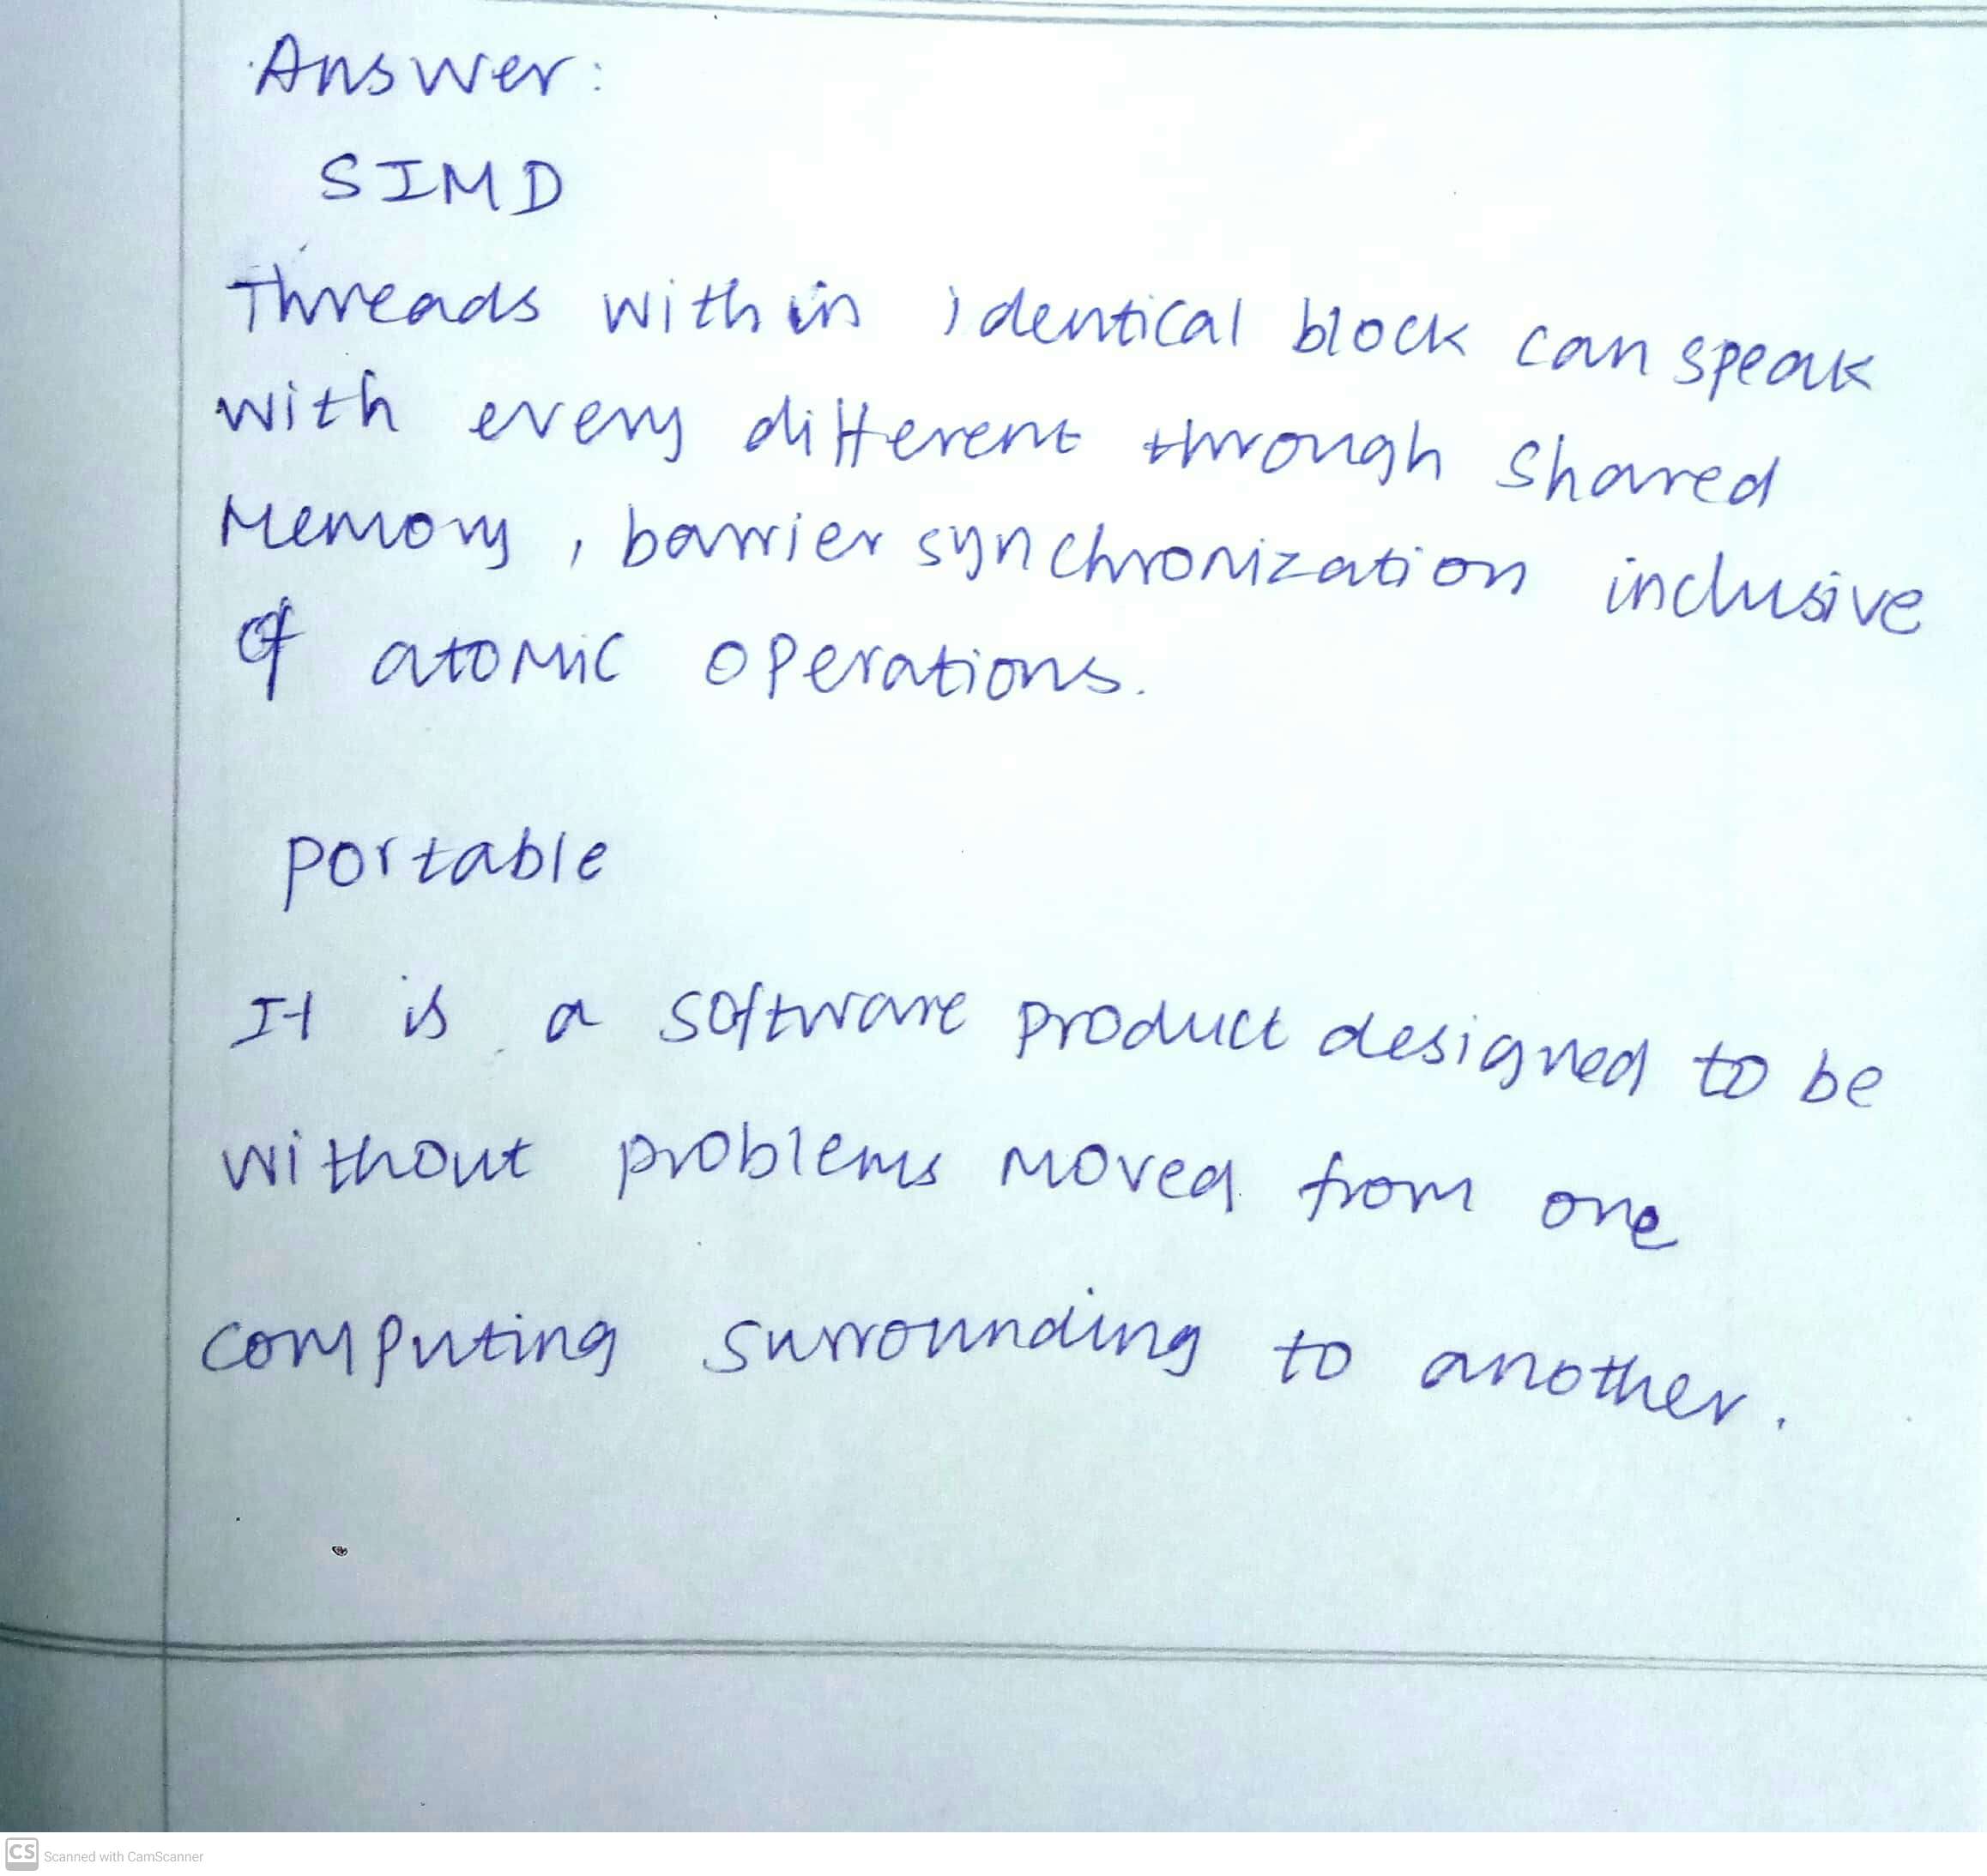 Answer:
SIMD
Threads within identical block can speak
with every different through shared
Memory, barrier synchronization inclusive
of atomic operations.
portable
It is a software product designed to be
without problems moved from one
computing surrounding to another.
CS Scanned with CamScanner